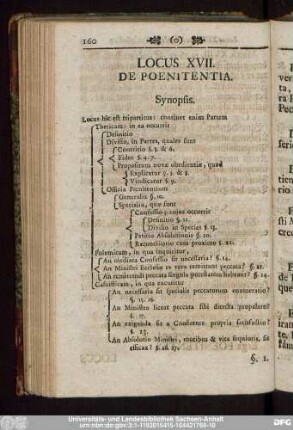 160 (o)
LOCUS XVII.
DE POENITENTIA.
Synopsis.
Locus hic est tripartitus: continet enim Partem
Theticam: in ea occurrit
Definitio
Divisio, in Partes, quales sunt
Contritio §. 3. & 6.
Fides §. 4. 7.
Propositum novæ obedientiæ, quod
Explicatur §. 5. & 8.
Vindicatur §. 9.
Officia Pœnitentium
Generalia §. 10.
Specialia, quæ sunt
Confessio; cujus occurrit
Definitio §. 11.
Divisio in Species §. 13.
Petitio Absolutionis §. 20.
Reconciliatio cum proximo § . 21.
Polemicam, in qua inquiritur,
An auricularis Confessio sit necessaria? §. 14.
An Ministri Ecclesiæ in vera remittant peccata? §.
An remittendi peccata singula potestatem habeant? §. 24.
Casisticam, in qua excutitur
An necessaria sit specialis peccatorum enumeratio?
§. 15. 16.
An Ministro liceat peccata sibi detecta propalare?
§. 17.
An exigenda sit a Confitente propria satisfactio?
§. 23.
An Absolutio Ministri, moribus & vita impuris, sit
efficax? §. 26. 27.
§. 1.
Universitäts- und Landesbibliothek Sachsen-Anhalt
urn:nbn:de:gbv:3:1-1192015415-164421768-10
DFG